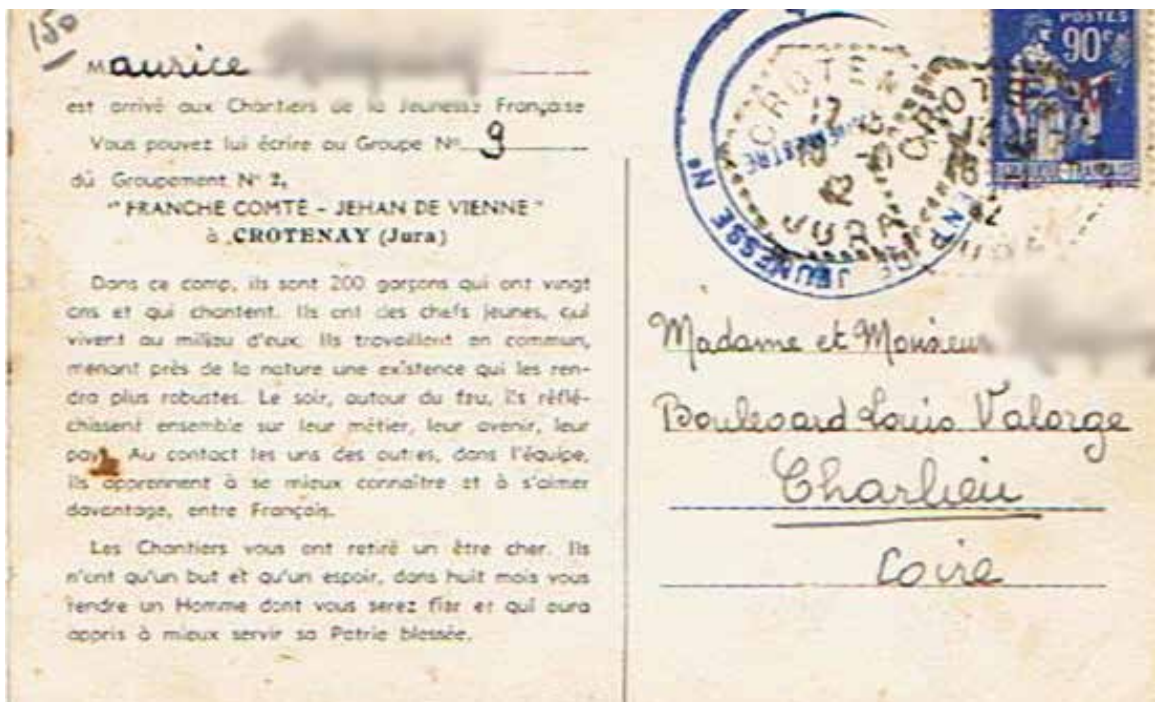 150
Maurice
est arrivé aux Chantiers de la Jeunesse Française
Vous pouvez lui écrire au Groupe N° 9
du Groupement N° 2,
"FRANCHE COMTÉ - JEHAN DE VIENNE"
à CROTENAY (Jura)
Dans ce camp, ils sont 200 garçons qui ont vingt
ans et qui chantent. Ils ont des chefs jeunes, qui
vivent au milieu d'eux. Ils travaillent en commun,
menant près de la nature une existence qui les ren-
dra plus robustes. Le soir, autour du feu, ils réflé-
chissent ensemble sur leur métier, leur avenir, leur
pays. Au contact les uns des autres, dans l'équipe,
ils apprennent à se mieux connaître et à s'aimer
davantage, entre Français.
Les Chantiers vous ont retiré un être cher. Ils
n'ont qu'un but et qu'un espoir, dans huit mois vous
rendre un Homme dont vous serez fier et qui aura
appris à mieux servir sa Patrie blessée.
POSTES
90c
JEUNESSE N°
JURA
Madame et Monsieur
Boulevard Louis Valorge
Charlieu
Loire